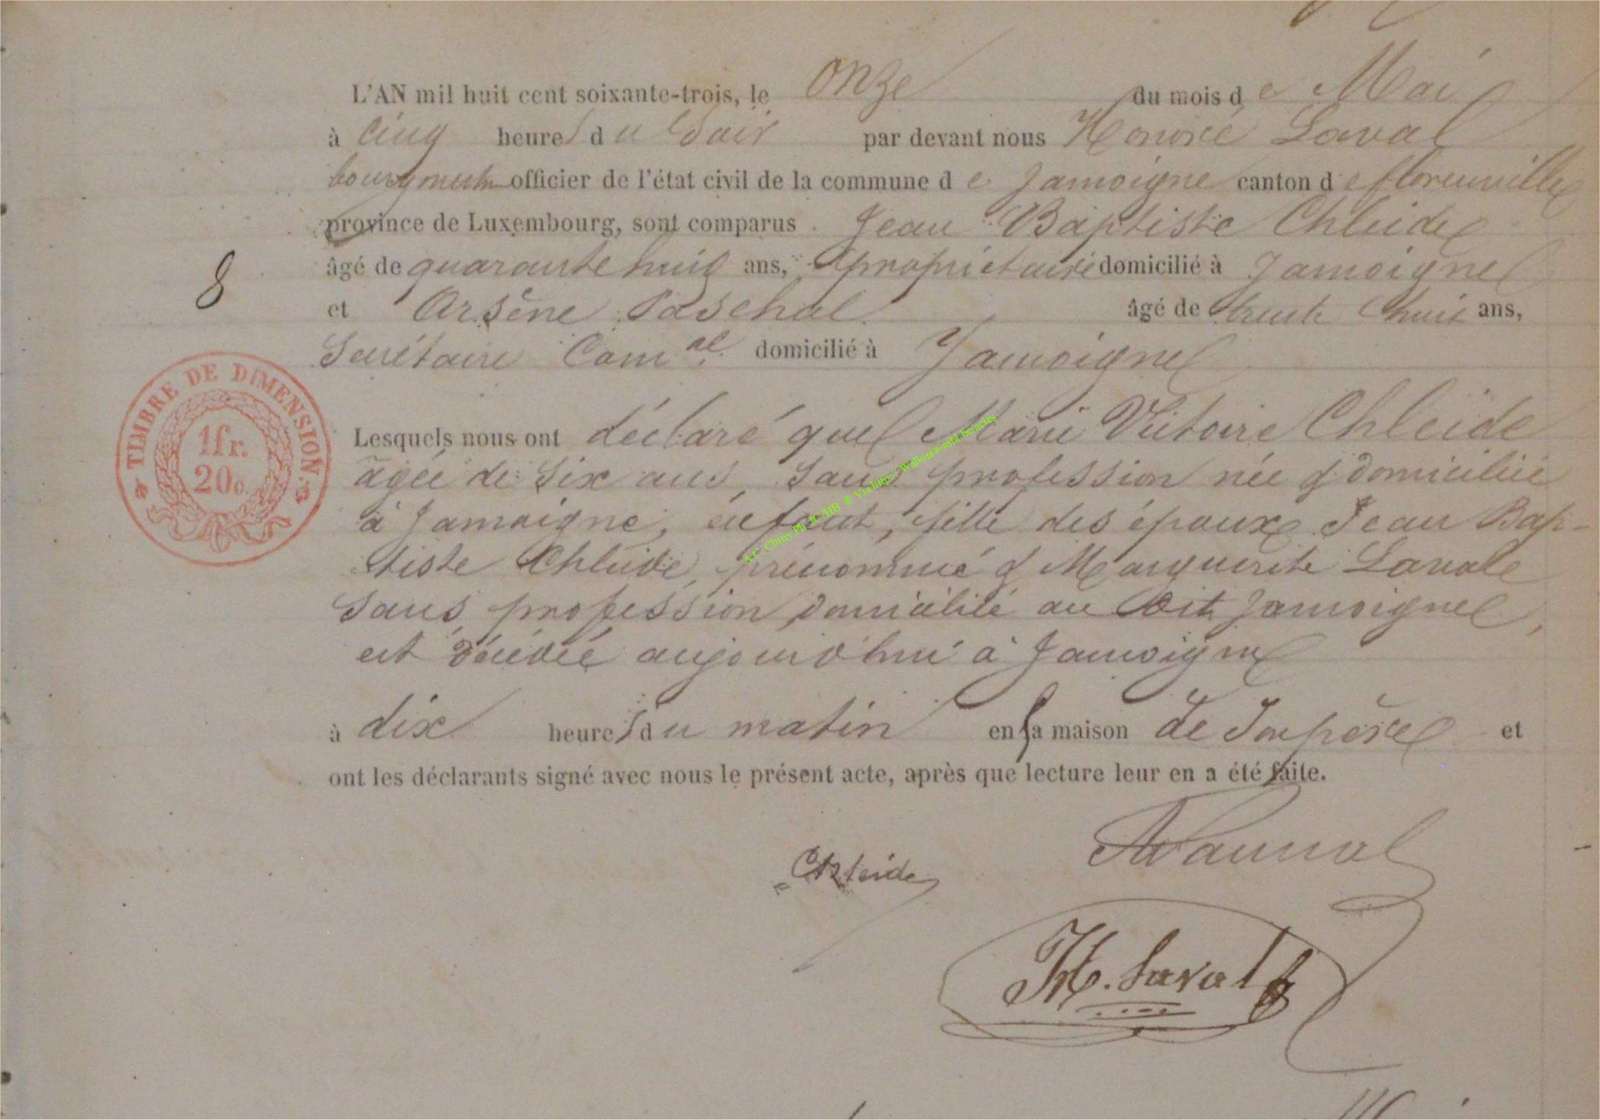 L'AN mil huit cent soixante-trois, le onze du mois de Mai
à cinq heures du Soir par devant nous Honoré Laval
bourgmestre officier de l'état civil de la commune de Jamoigne canton de florenville
province de Luxembourg, sont comparus Jean Baptiste Chleide
âgé de quarante huit ans, propriétaire domicilié à Jamoigne
8
et Arsène Paschal âgé de trente huit ans,
Secrétaire Com.al domicilié à Jamoigne
TIMBRE DE DIMENSION
1fr.
20c.
Lesquels nous ont déclaré que Marie Victoire Chleide
agée de Six ans, Sans profession née & domiciliée
à Jamoigne, enfant, fille des époux Jean Bap-
tiste Chleide, prénommé & Marguerite Lavale
Sans profession domicilié au dit Jamoigne,
est décédée aujourd'hui à Jamoigne
à dix heures du matin en sa maison de Son père et
ont les déclarants signé avec nous le présent acte, après que lecture leur en a été faite.
Chleide
H. Laval